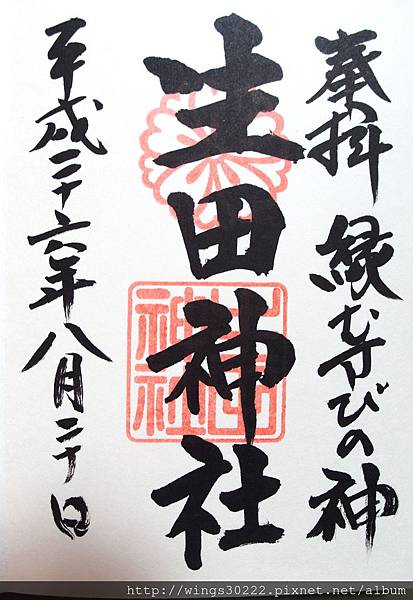 奉拝 縁むすびの神
生田神社
平成二十六年八月二十日
http://wings30222.pixnet.net/album